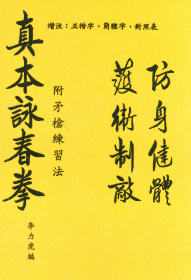 增注：正楷字、簡體字、對照表
防身健體
護衛制敵
附矛槍練習法
真本詠春拳
李力虎編